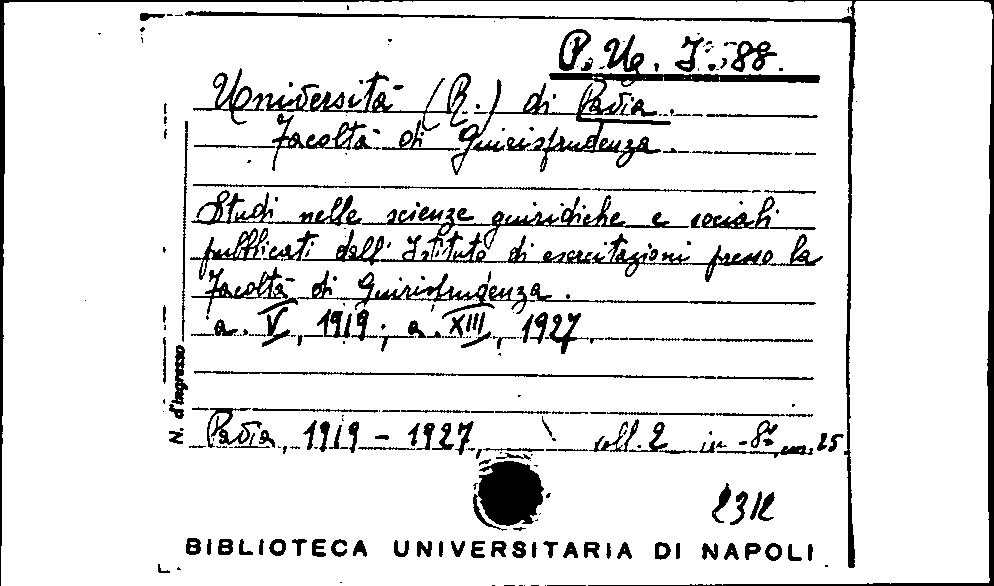 P. Ug. I 88.
Università (R.) di Pavia.
Facoltà di Giurisprudenza.
Studi nelle scienze giuridiche e sociali
pubblicati dall'Istituto di esercitazioni presso la
Facoltà di Giurisprudenza.
a. V, 1919; a. XIII, 1927.
N. d'ingresso
Pavia, 1919 - 1927, voll. 2 in-8°, cm. 25.
2312
BIBLIOTECA UNIVERSITARIA DI NAPOLI